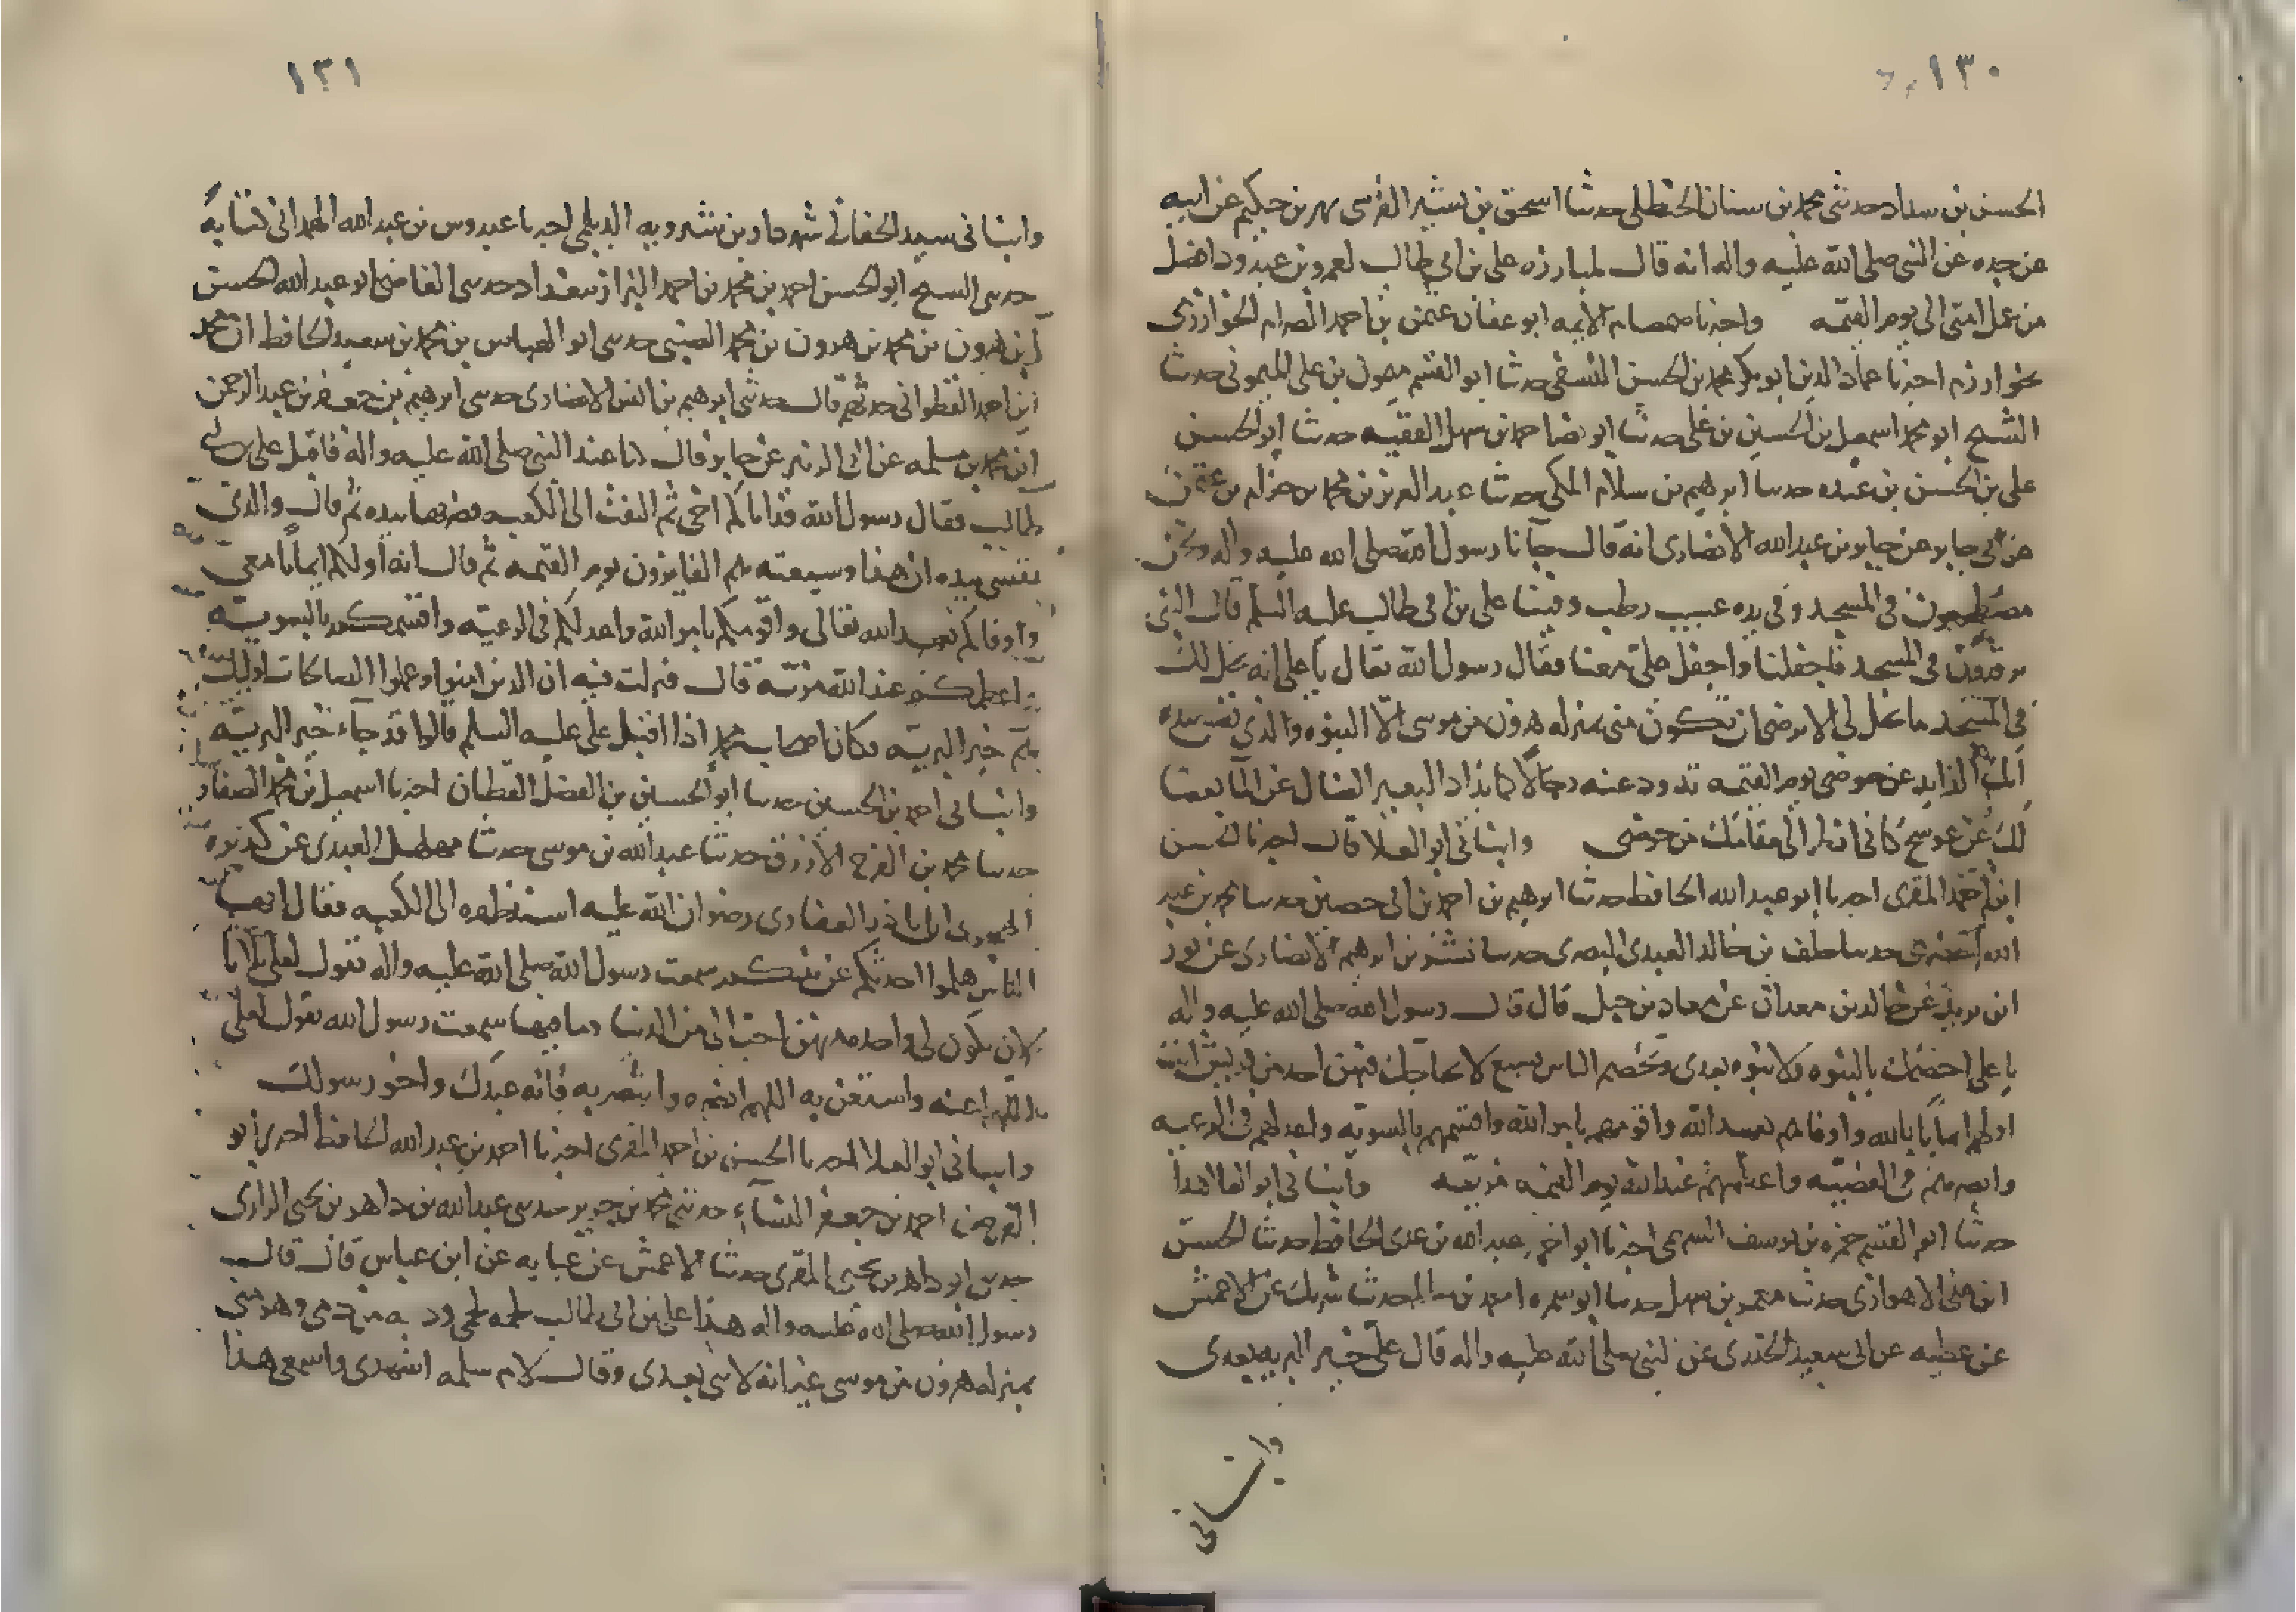 ١٣٠
الحسن بن سداد حدثني محمد بن سنان الحنظلي حدثنا اسحق بن بشير القرسى بهر بن حكيم عن ابيه
عن جده عن النبي صلى الله عليه واله انه قال لمبارزه على بن ابي طالب لعمرو بن عبد ود افضل
من عمل امتى الى يوم القيمه واخبرنا صمصام الايمه ابو عفان عثمن بن احمد الصرام الخوارزمى
بخوارزم اخبرنا عماد الدين ابو بكر محمد بن الحسن النسفى حدثنا ابو القسم ميمون بن على الميمونى حدثنا
الشيخ ابو محمد اسمعيل بن الحسين بن على حدثنا ابو نصر احمد بن سهل الفقيه حدثنا ابو الحسن
على بن الحسن بن عبده حدسا ابرهيم بن سلام المكى حدثنا عبد العزيز بن محمد بن حرام بن عثمن
عن ابى جابر عن جابر بن عبد الله الانصارى انه قال جآنا رسول الله صلى الله عليه واله ونحن
مضطجعون فى المسجد وفى يده عسيب رطب وفينا على بن ابى طالب عليه السلم قال النبى
ترقدون فى المسجد فاجفلنا واجفل على معنا فقال رسول الله تعال يا على انه يحل لك
فى المسجد ما يحل لى الا ترضى ان تكون منى بمنزله هرون من موسى الا النبوه والذي نفسي بيده
انك الذايد عن حوضى يوم القيمه تذود عنه رجالا كما يذاد البعير الضال عن المآ بعصا
لك من عوسج كانى انظر الى مقامك من حوضى وانبانى ابو العلا قال اخبرنا الحسن
ابن احمد المقرى اخبرنا ابو عبد الله الحافظ حدثنا ابرهيم بن احمد بن ابى حصين حدسا محمد بن عبد
الله الحضرمى حدسا خلف بن خالد العبدى البصرى حدسا بشر بن ابرهيم الانصارى عن ثور
ابن يزيد عن خالد بن معدان عن معاد بن جبل قال قال رسول الله صلى الله عليه واله
يا على اخصمك بالنبوه ولا نبوه بعدى وتخصم الناس بسبع لا يحاجك فيهن احد من قريش انت
اولهم ايمانا بالله واوفاهم بعهد الله واقومهم بامر الله واقسمهم بالسويه واعدلهم فى الرعيه
وابصرهم فى القضيه واعظمهم عند الله يوم القيمه مزيه وانبانى ابو العلا هذا
حدثنا ابو القسم حمزه بن يوسف السهمى اخبرنا ابو احمد عبد الله بن عدى الحافظ حدثنا الحسن
ابن على الاهوازى حدثنا معمر بن سهل حدسا ابو سمره احمد بن سالم حدثنا شريك عن الاعمش
عن عطيه عن ابى سعيد الخدرى عن النبى صلى الله عليه واله قال على خير البريه بعدى
وانبانى
١٣١
وانبانى سيد الحفاظ شهردار بن شيرويه الديلمى اخبرنا عبدوس بن عبد الله الهمدانى كتابه
حدسى الشيخ ابو الحسن احمد بن محمد بن احمد البزاز ببغداد حدسى القاضى ابو عبد الله الحسن
ابن هرون بن محمد بن هرون بن محمد الضبى حدسى ابو العباس بن محمد بن سعيد الحافظ ان محمد
ابن احمد القطوانى حدثهم قال حدثنى ابرهيم بن انس الانصارى حدسى ابرهيم بن جعفر بن عبد الرحمن
ابن محمد بن مسلمه عن ابى الزبير عن جابر قال كنا عند النبى صلى الله عليه واله فاقبل على بن ابى
طالب فقال رسول الله قد اتاكم اخى ثم التفت الى الكعبه فضربها بيده ثم قال والذى
نفسى بيده ان هذا وشيعته هم الفايزون يوم القيمه ثم قال انه اولكم ايمانا معى
واوفاكم بعهد الله تعالى واقومكم بامر الله واعدلكم فى الرعيه واقسمكم بالسويه
واعظمكم عند الله مزيه قال فنزلت فيه ان الذين امنوا وعملوا الصالحات اوليك
هم خير البريه وكان اصحاب محمد اذا اقبل على عليه السلم قالوا قد جآء خير البريه
وانبانى احمد بن الحسين حدسا ابو الحسين بن الفضل القطان اخبرنا اسمعيل بن محمد الصفار
حدسا محمد بن الفرج الازرق حدثنا عبيد الله بن موسى حدثنا مهلهل العبدى عن كديره
الهجرى ان ابا ذر الغفارى رضوان الله عليه اسند ظهره الى الكعبه فقال ايها
الناس هلموا احدثكم عن نبيكم سمعت رسول الله صلى الله عليه واله يقول لعلى ثلاثا
لان يكون لى واحده منهن احب الى من الدنيا وما فيها سمعت رسول الله يقول لعلى
اللهم اعنه واستعن به اللهم انصره وانتصر به فانه عبدك واخو رسولك
وانبانى ابو العلا اخبرنا الحسن بن احمد المقرى اخبرنا احمد بن عبد الله الحافظ اخبرنا ابو
الفرج احمد بن جعفر النسآء حدثنى محمد بن جرير حدسى عبد الله بن داهر بن يحيى الرازى
حدسى ابو داهر بن يحيى المقرى حدثنا الاعمش عن عبايه عن ابن عباس قال قال
رسول الله صلى الله عليه واله هذا على بن ابى طالب لحمه لحمى ودمه من دمى وهو منى
بمنزله هرون من موسى غير انه لا نبى بعدى وقال لام سلمه اشهدى واسمعى هذا